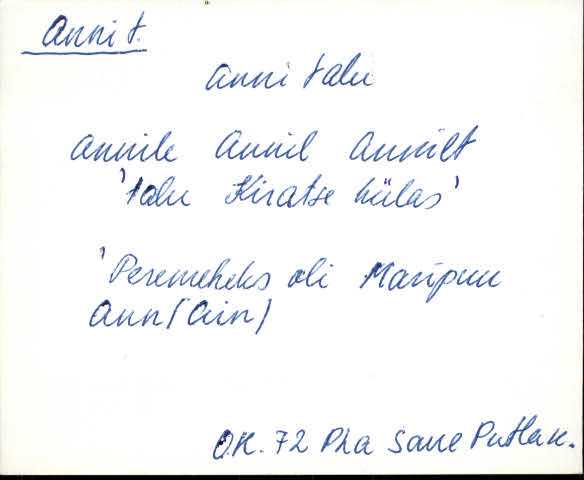 Anni t.
Anni talu
Annile Annil Annilt
'talu Kiratse külas'
'Peremeheks oli Maripuu
Ann (Ain)
O.K. 72 Pha Saue Putlak.